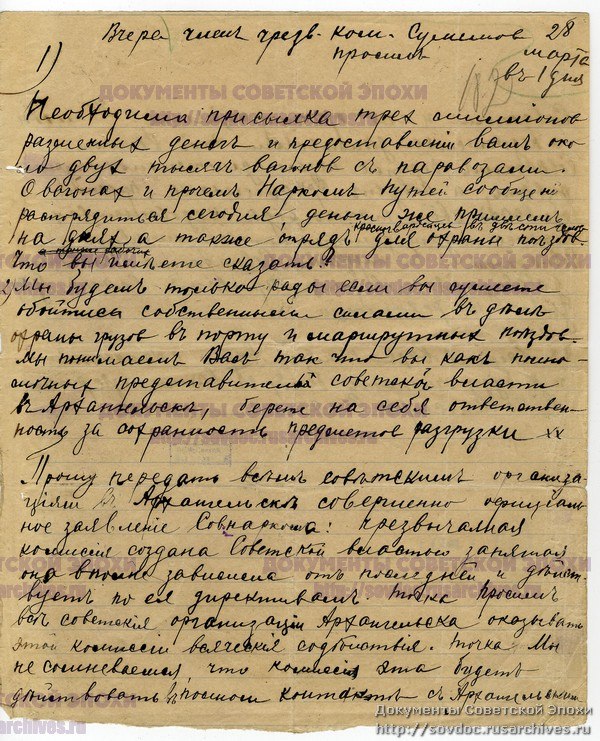 Вчера членъ чрезв. ком. Сулимовъ 28
просилъ марта
1) въ 1 дня
Необходима присылка трех миллионов
разменных денегъ и предоставленiи вамъ око-
ло двух тысячъ вагонов съ паровозами.
О вагонах и прочемъ Наркомъ путей сообщенi
распорядиться сегодня деньги же пришлемъ
красногвардейцев въ двести человек
на днях а также отрядъ для охраны поездов.
Что вы можете сказать?
2) Мы будемъ только рады если вы сумеете
обойтись собственными силами въ дѣлѣ
охраны грузов въ порту и маршрутных поездов.
Мы понимаемъ Васъ такъ что вы какъ полно-
мочных представители советской власти
въ Архангельскѣ, берете на себя ответствен-
ность за сохранность предметов разгрузки хх
Прошу передать всѣмъ совѣтскимъ организа-
цiям въ Архангельскѣ совершенно официаль-
ное заявленiе Совнаркома: чрезвычайная
комиссiя создана Советской властью
она вполнѣ зависима отъ последней и дѣйст-
вуетъ по ея директивамъ точка просимъ
всѣ советскiя организацiи Архангельска оказывать
этой комиссiи всяческiя содѣйствiя. точка Мы
не сомневаемся, что комиссiя эта будетъ
дѣйствовать въ полном контактѣ съ Архангельским
ДОКУМЕНТЫ СОВЕТСКОЙ ЭПОХИ
Документы Советской Эпохи
http://sovdoc.rusarchives.ru